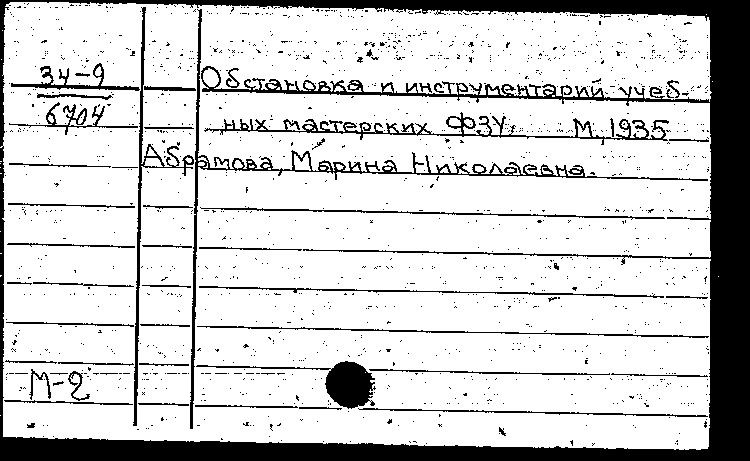 34-9
Обстановка и инструментарий учеб-
6704
ных мастерских ФЗУ, М, 1935
Абрамова, Марина Николаевна.
М-2